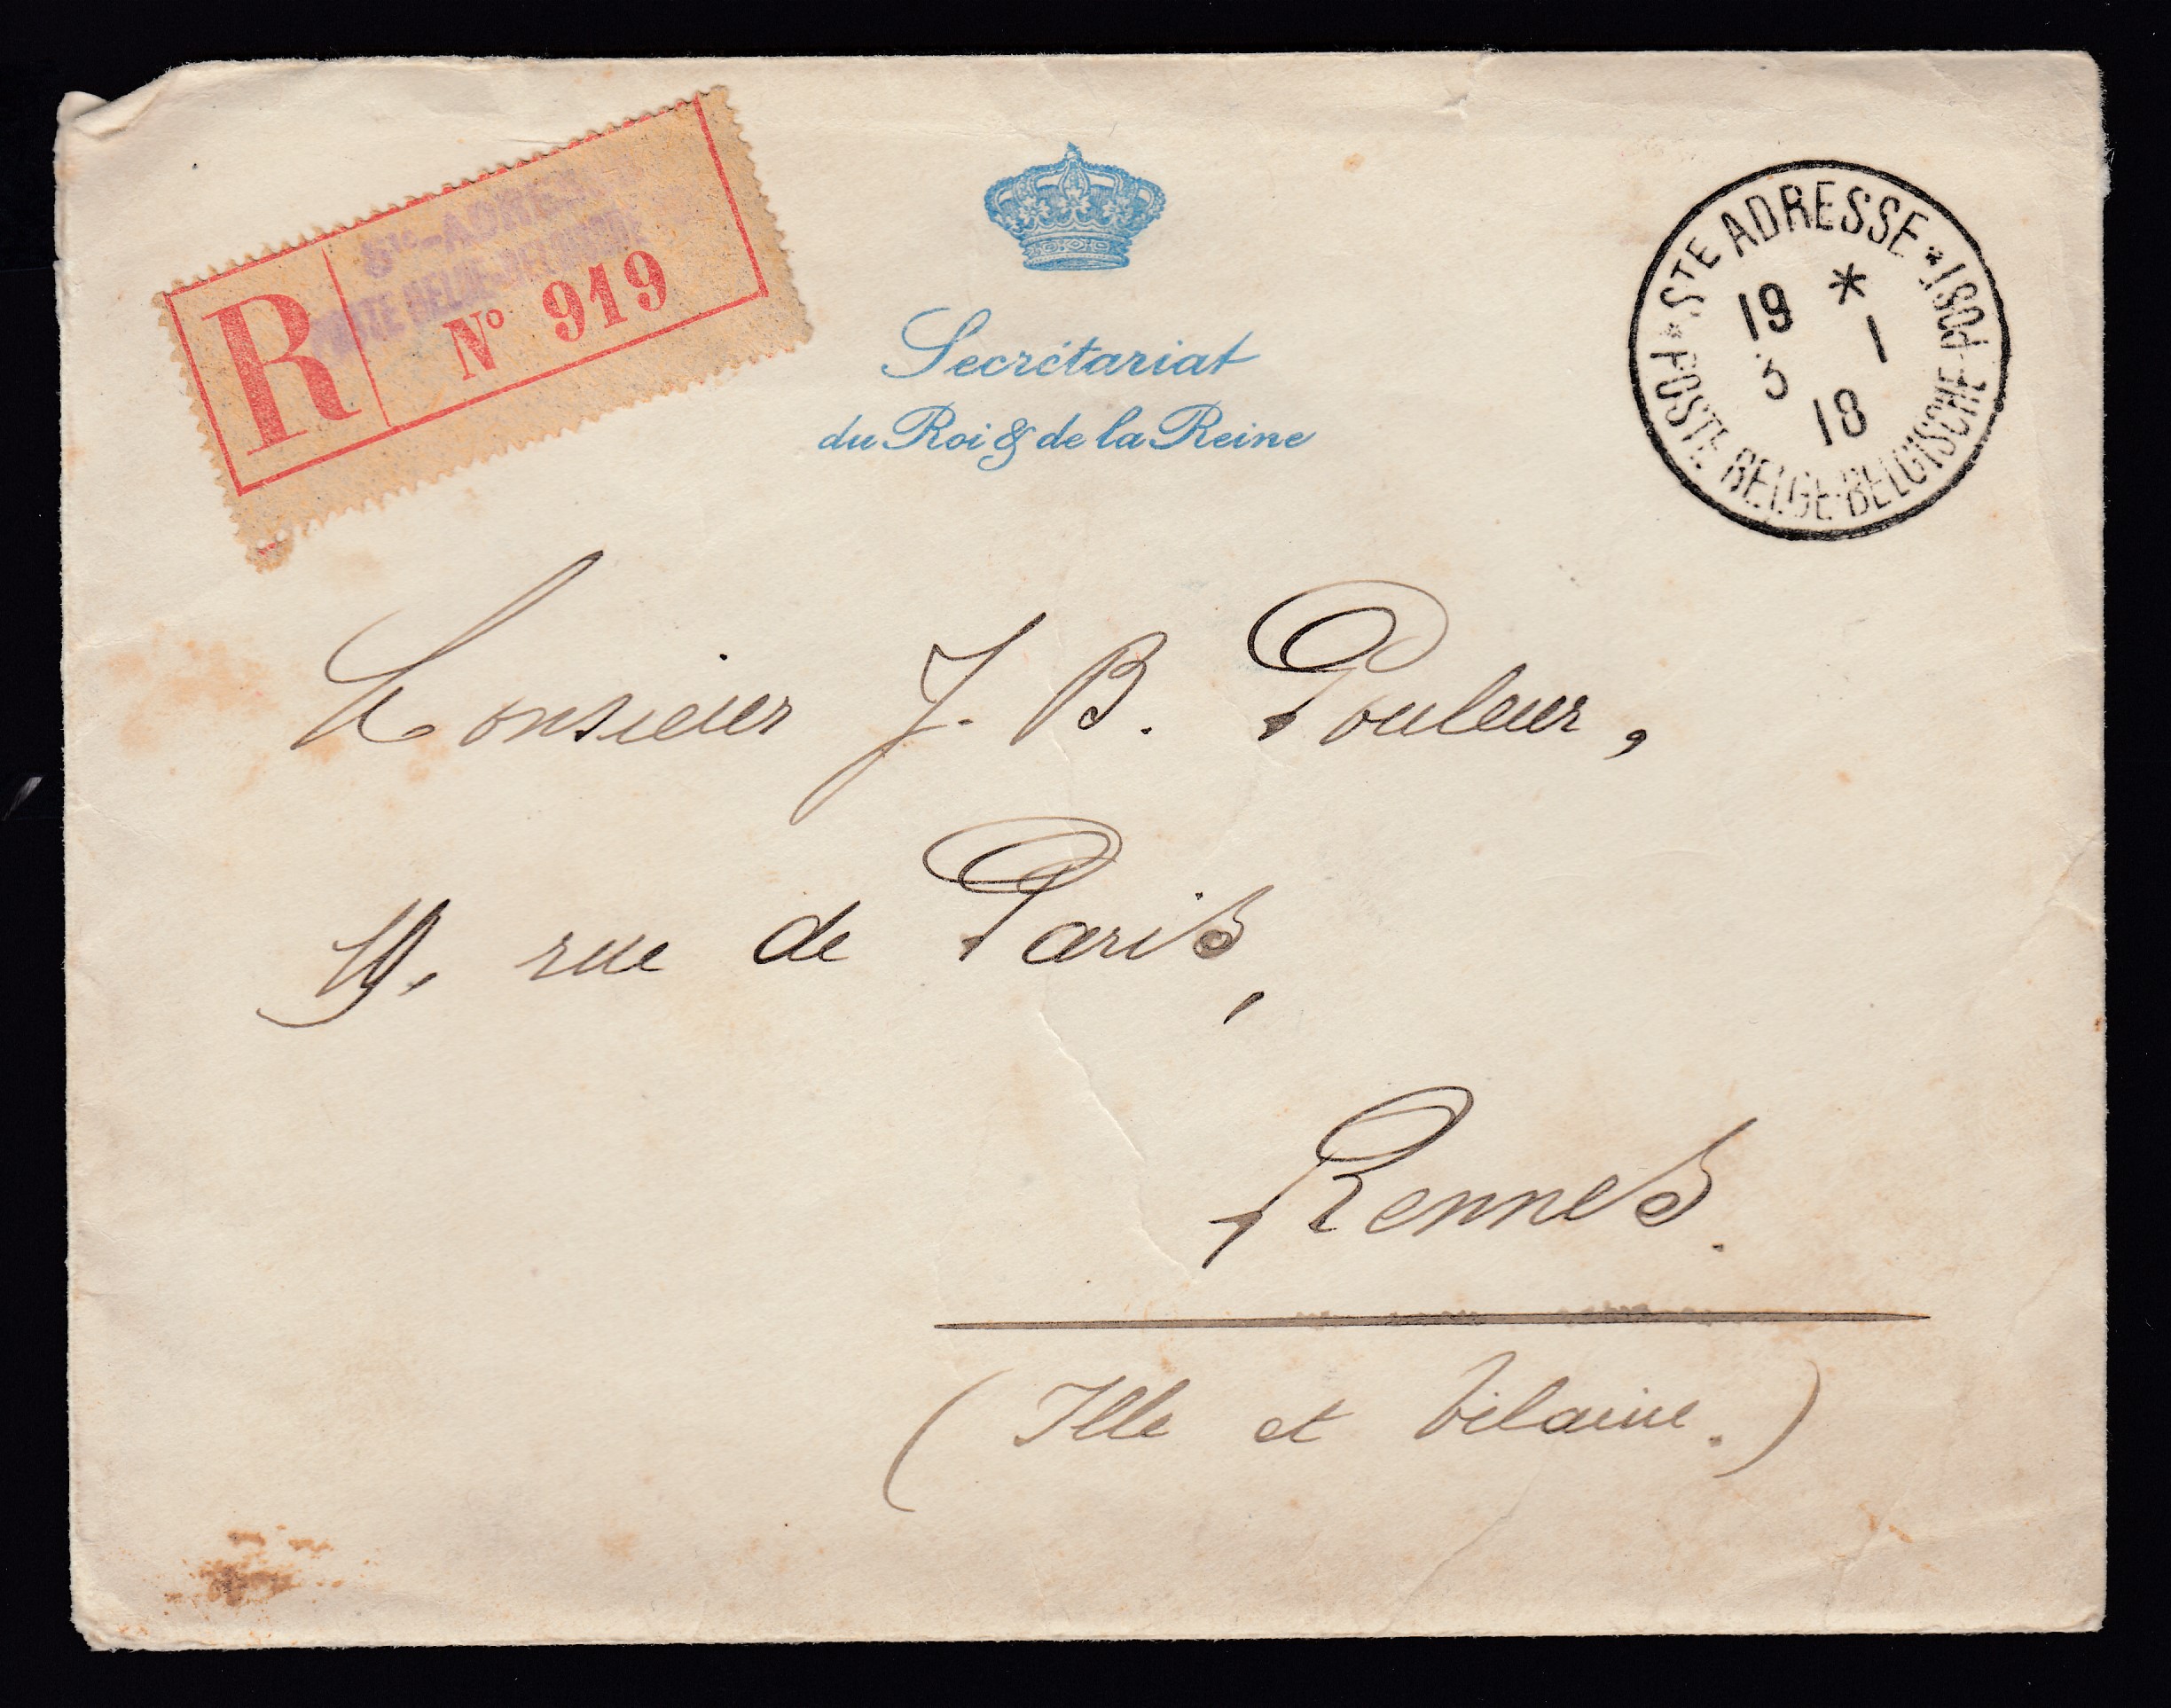 R
Ste-ADRESSE
POSTE BELGE-BELGISCHE
N° 919
Secrétariat
du Roi & de la Reine
* STE ADRESSE *
19 *
3 1
18
POSTE BELGE-BELGISCHE POST
Monsieur J. B. Pouleur,
19, rue de Paris,
Rennes.
(Ille et Vilaine.)